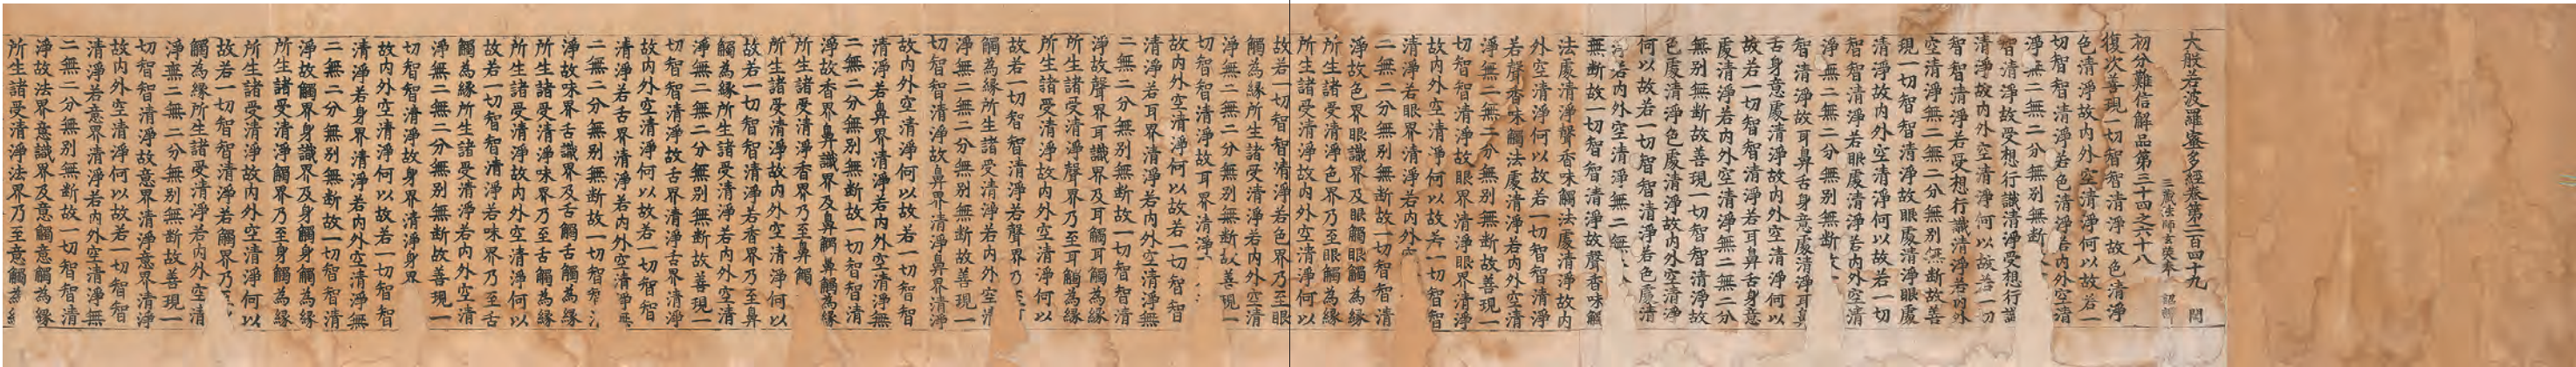 大般若波羅蜜多經卷第二百四十九 問
三藏法師玄奘奉 詔譯
初分難信解品第三十四之六十八
復次善現一切智智清淨故色清淨
色清淨故內外空清淨何以故若一
切智智清淨若色清淨若內外空清
淨無二無二分無別無斷
智清淨故受想行識清淨受想行識
清淨故內外空清淨何以故若一切
智智清淨若受想行識清淨若內外
空清淨無二無二分無別無斷故善
現一切智智清淨故眼處清淨眼處
清淨故內外空清淨何以故若一切
智智清淨若眼處清淨若內外空清
淨無二無二分無別無斷
智清淨故耳鼻舌身意處清淨耳鼻
舌身意處清淨故內外空清淨何以
故若一切智智清淨若耳鼻舌身意
處清淨若內外空清淨無二無二分
無別無斷故善現一切智智清淨故
色處清淨色處清淨故內外空清淨
何以故若一切智智清淨若色處清
淨若內外空清淨無二無
無斷故一切智智清淨故聲香味觸
法處清淨聲香味觸法處清淨故內
外空清淨何以故若一切智智清淨
若聲香味觸法處清淨若內外空清
淨無二無二分無別無斷故善現一
切智智清淨故眼界清淨眼界清淨
故內外空清淨何以故若一切智智
清淨若眼界清淨若內外
二無二分無別無斷故一切智智清
淨故色界眼識界及眼觸眼觸為緣
所生諸受清淨色界乃至眼觸為緣
所生諸受清淨故內外空清淨何以
故若一切智智清淨若色界乃至眼
觸為緣所生諸受清淨若內外空清
淨無二無二分無別無斷故善現一
切智智清淨故耳界清淨
故內外空清淨何以故若一切智智
清淨若耳界清淨若內外空清淨無
二無二分無別無斷故一切智智清
淨故聲界耳識界及耳觸耳觸為緣
所生諸受清淨聲界乃至耳觸為緣
所生諸受清淨故內外空清淨何以
故若一切智智清淨若聲界乃至
觸為緣所生諸受清淨若內外空清
淨無二無二分無別無斷故善現一
切智智清淨故鼻界清淨鼻界清淨
故內外空清淨何以故若一切智智
清淨若鼻界清淨若內外空清淨無
二無二分無別無斷故一切智智清
淨故香界鼻識界及鼻觸鼻觸為緣
所生諸受清淨香界乃至鼻觸
所生諸受清淨故內外空清淨何以
故若一切智智清淨若香界乃至鼻
觸為緣所生諸受清淨若內外空清
淨無二無二分無別無斷故善現一
切智智清淨故舌界清淨舌界清淨
故內外空清淨何以故若一切智智
清淨若舌界清淨若內外空清淨無
二無二分無別無斷故一切智智清
淨故味界舌識界及舌觸舌觸為緣
所生諸受清淨味界乃至舌觸為緣
所生諸受清淨故內外空清淨何以
故若一切智智清淨若味界乃至舌
觸為緣所生諸受清淨若內外空清
淨無二無二分無別無斷故善現一
切智智清淨故身界清淨身界
故內外空清淨何以故若一切智智
清淨若身界清淨若內外空清淨無
二無二分無別無斷故一切智智清
淨故觸界身識界及身觸身觸為緣
所生諸受清淨觸界乃至身觸為緣
所生諸受清淨故內外空清淨何以
故若一切智智清淨若觸界乃
觸為緣所生諸受清淨若內外空清
淨無二無二分無別無斷故善現一
切智智清淨故意界清淨意界清淨
故內外空清淨何以故若一切智智
清淨若意界清淨若內外空清淨無
二無二分無別無斷故一切智智清
淨故法界意識界及意觸意觸為緣
所生諸受清淨法界乃至意觸為緣